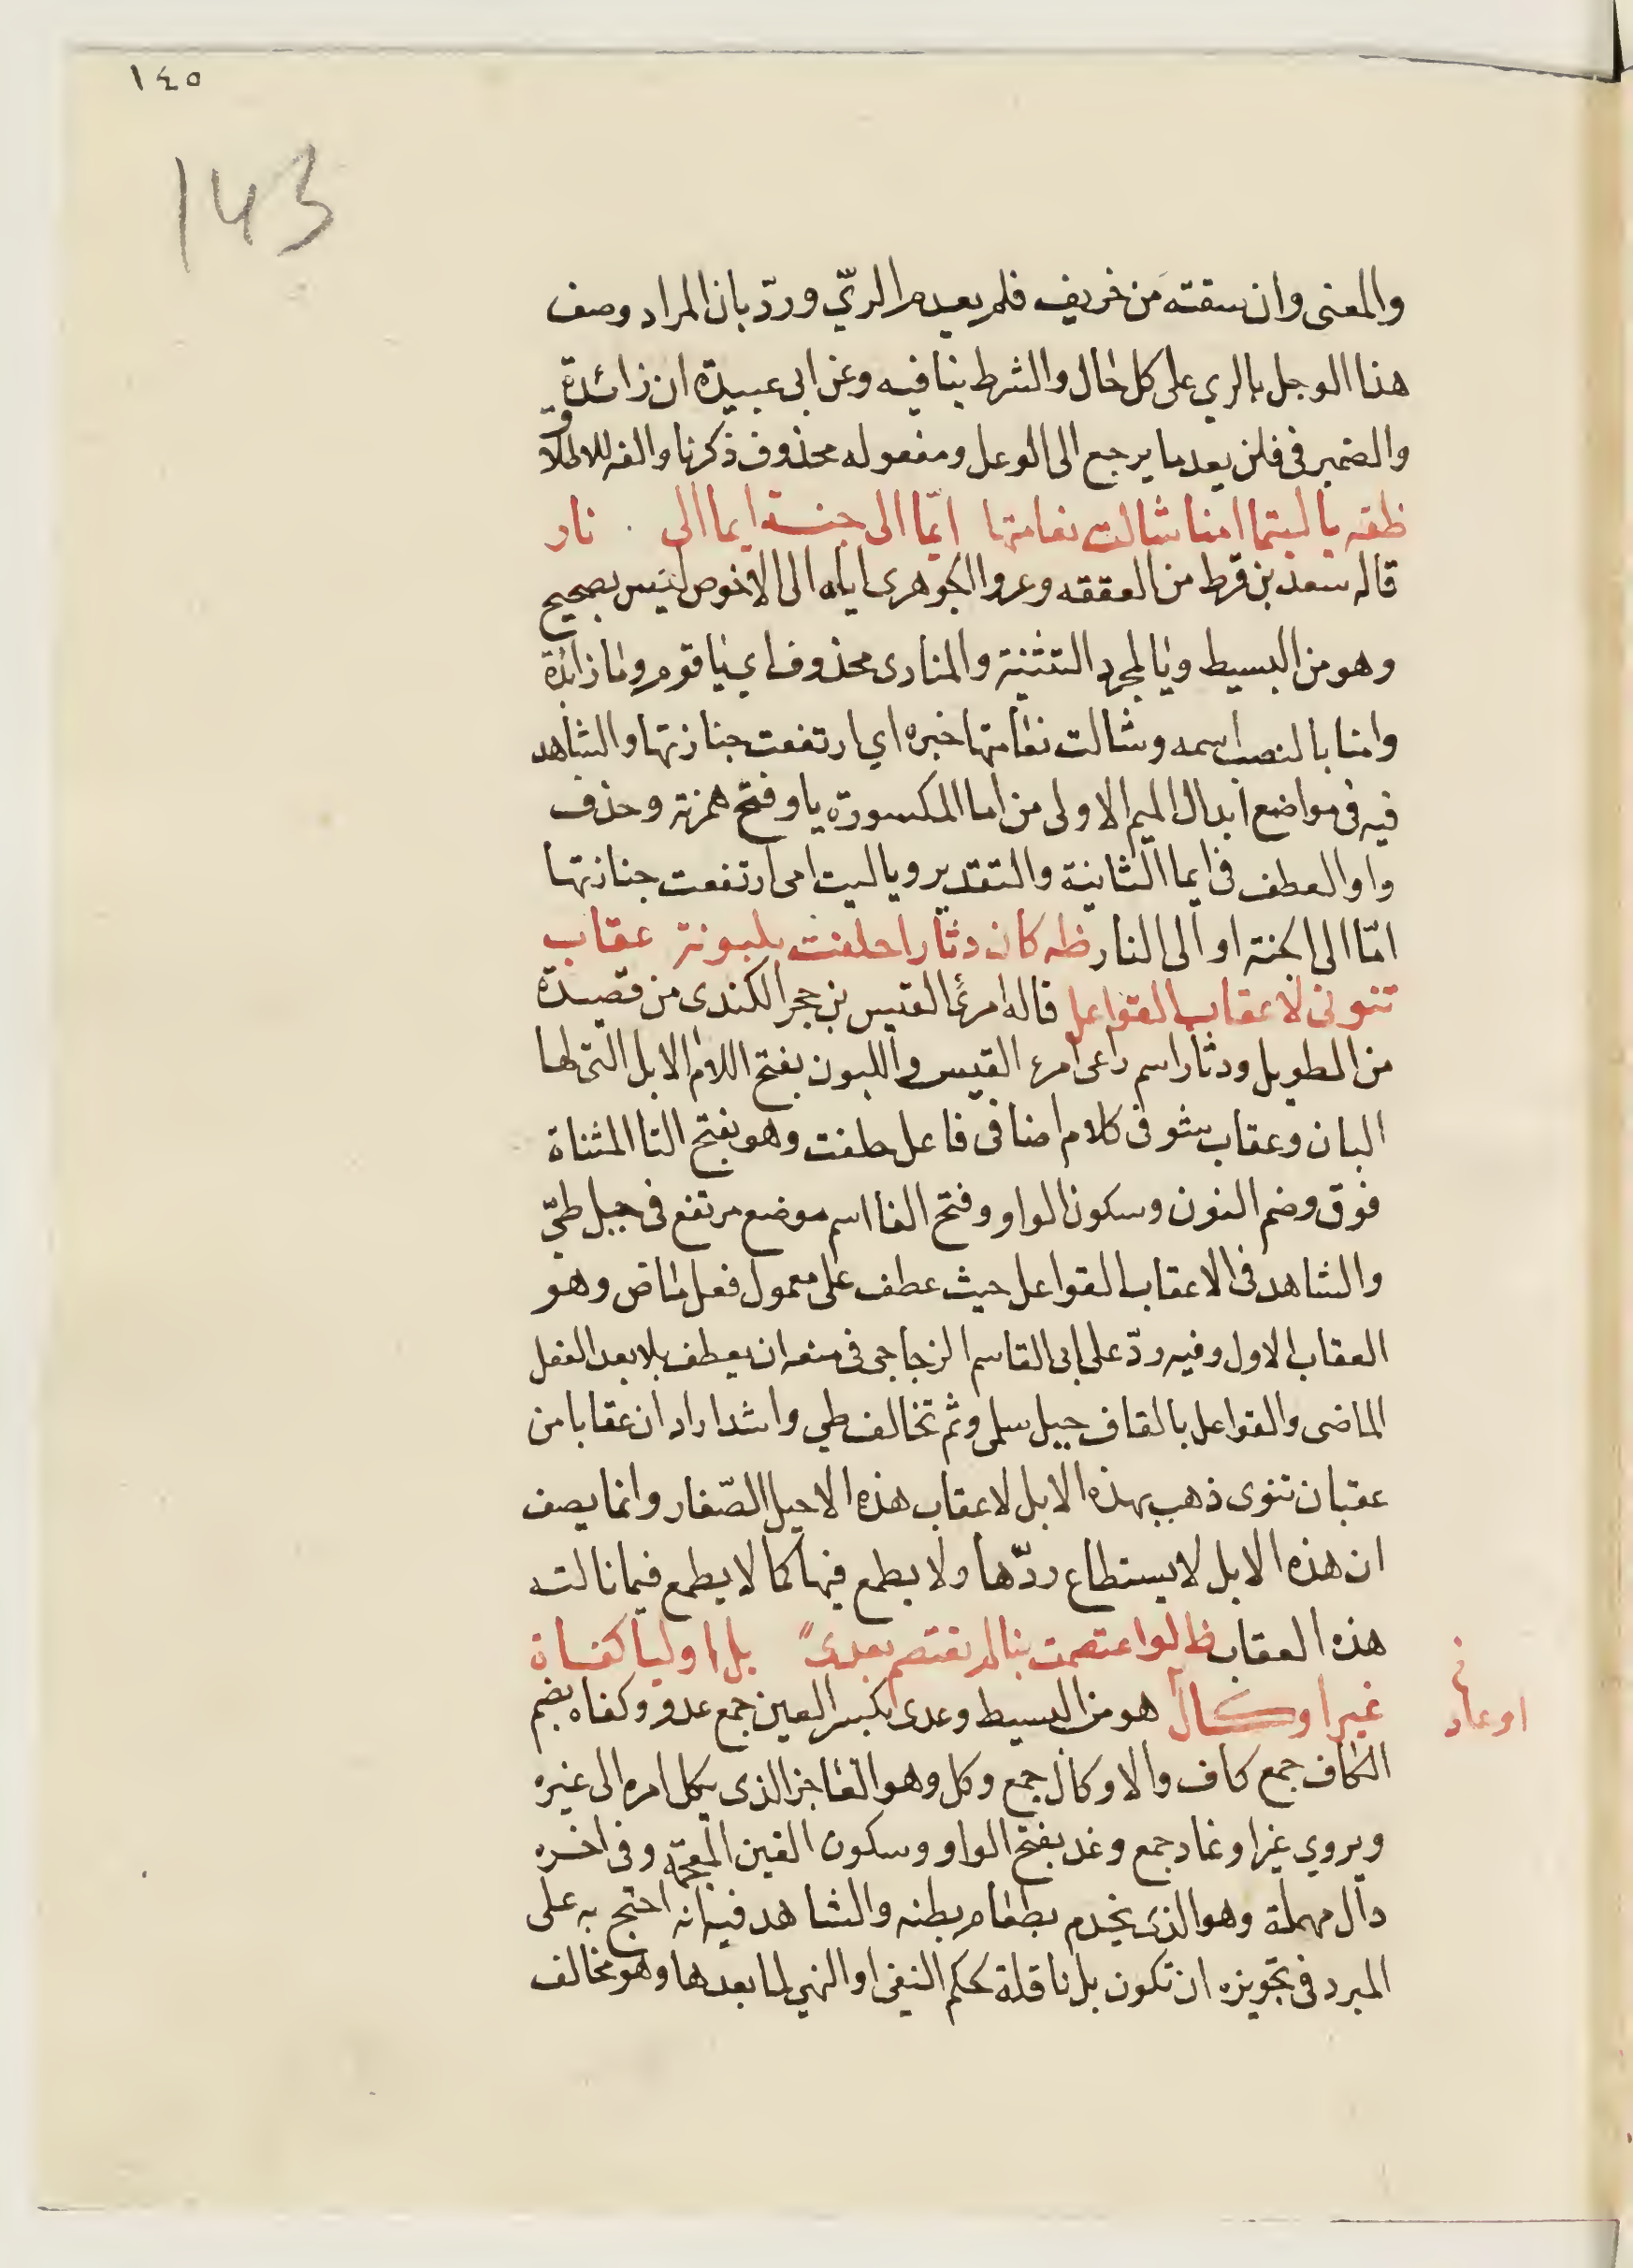 ١٤٥
143
والمعنى وان سقته من خريف فلم يعدم الريّ وردّ بان المراد وصف
هذا الوجل بالري على كل حال والشرط ينافيه وعن ابى عبيدة ان زائدة
والضمير فى فلن يعدما يرجع الى الوعل ومفعوله محذوف ذكرنا والفه للاطلاق
ظقه يا ليتما امنا شالت نعامتها ايّما الى جنة ايما الى نار
قاله سعد بن قرط من العققه وعزوا الجوهرى اياه الى الاخوص ليس بصحيح
وهو من البسيط ويا لمجرد التثنية والمنادى محذوف اي يا قوم وما زائدة
وامنا بالنصب اسمه وشالت نعامتها خبره اي ارتفعت جنازتها والشاهد
فيه فى مواضع ابدال الميم الاولى من اما المكسورة يا وفتح همزته وحذف
واو العطف فى ايما الثانية والتقدير ويا ليت امى ارتفعت جنازتها
امّا الى الجنة او الى النار ظه كان دثارا حلفت بلبونه عقاب
تنوفى لا عقاب القواعل قاله امرئ القيس بن حجر الكندى من قصيدة
من الطويل ودثار اسم راعى امرء القيس واللبون بفتح اللام الابل التى لها
البان وعقاب تنوفى كلام اضافى فاعل حلفت وهو بفتح التا المثناة
فوق وضم النون وسكون الواو وفتح الفا اسم موضع مرتفع فى جبل طيّ
والشاهد فى الاعقاب القواعل حيث عطف على معمول فعل ماض وهو
العقاب الاول وفيه ردّ على ابى القاسم الزجاجى فى منعه ان يعطف بلا بعد الفعل
الماضى والقواعل بالقاف جبل سلمى وثم تخالف طي واشد اراد ان عقابا من
عقبان تنوى ذهب بهذه الابل لا عقاب هذه الاجبل الصّغار وانما يصف
ان هذه الابل لا يستطاع ردّها ولا يطمع فيها كما لا يطمع فيما نالته
هذه العقاب ظ لو اعتصمت بنا لم تعتصم بعدىً بل اوليا كفاة
غير اوكال هو من البسيط وعدى بكسر العين جمع عدو وكفاه بضم
اوغاد
الكاف جمع كاف والاوكال جمع وكل وهو العاجز الذى يكل امره الى غيره
ويروي غير اوغاد جمع وغد بفتح الواو وسكون الغين المعجمة وفى اخره
دال مهملة وهو الذى يخدم بطعام بطنه والشاهد فيه انه احتج به على
المبرد فى تجويزه ان تكون بل ناقلة حكم النفى او النهي لما بعدها وهو مخالف